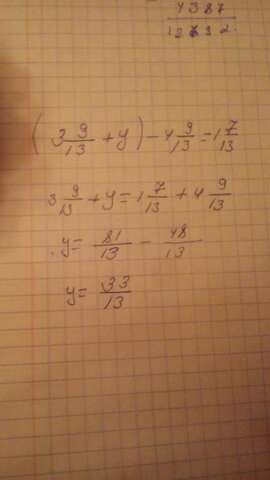 4387
(3 9/13 + y) - 4 9/13 = 1 7/13
3 9/13 + y = 1 7/13 + 4 9/13
y = 81/13 - 48/13
y = 33/13